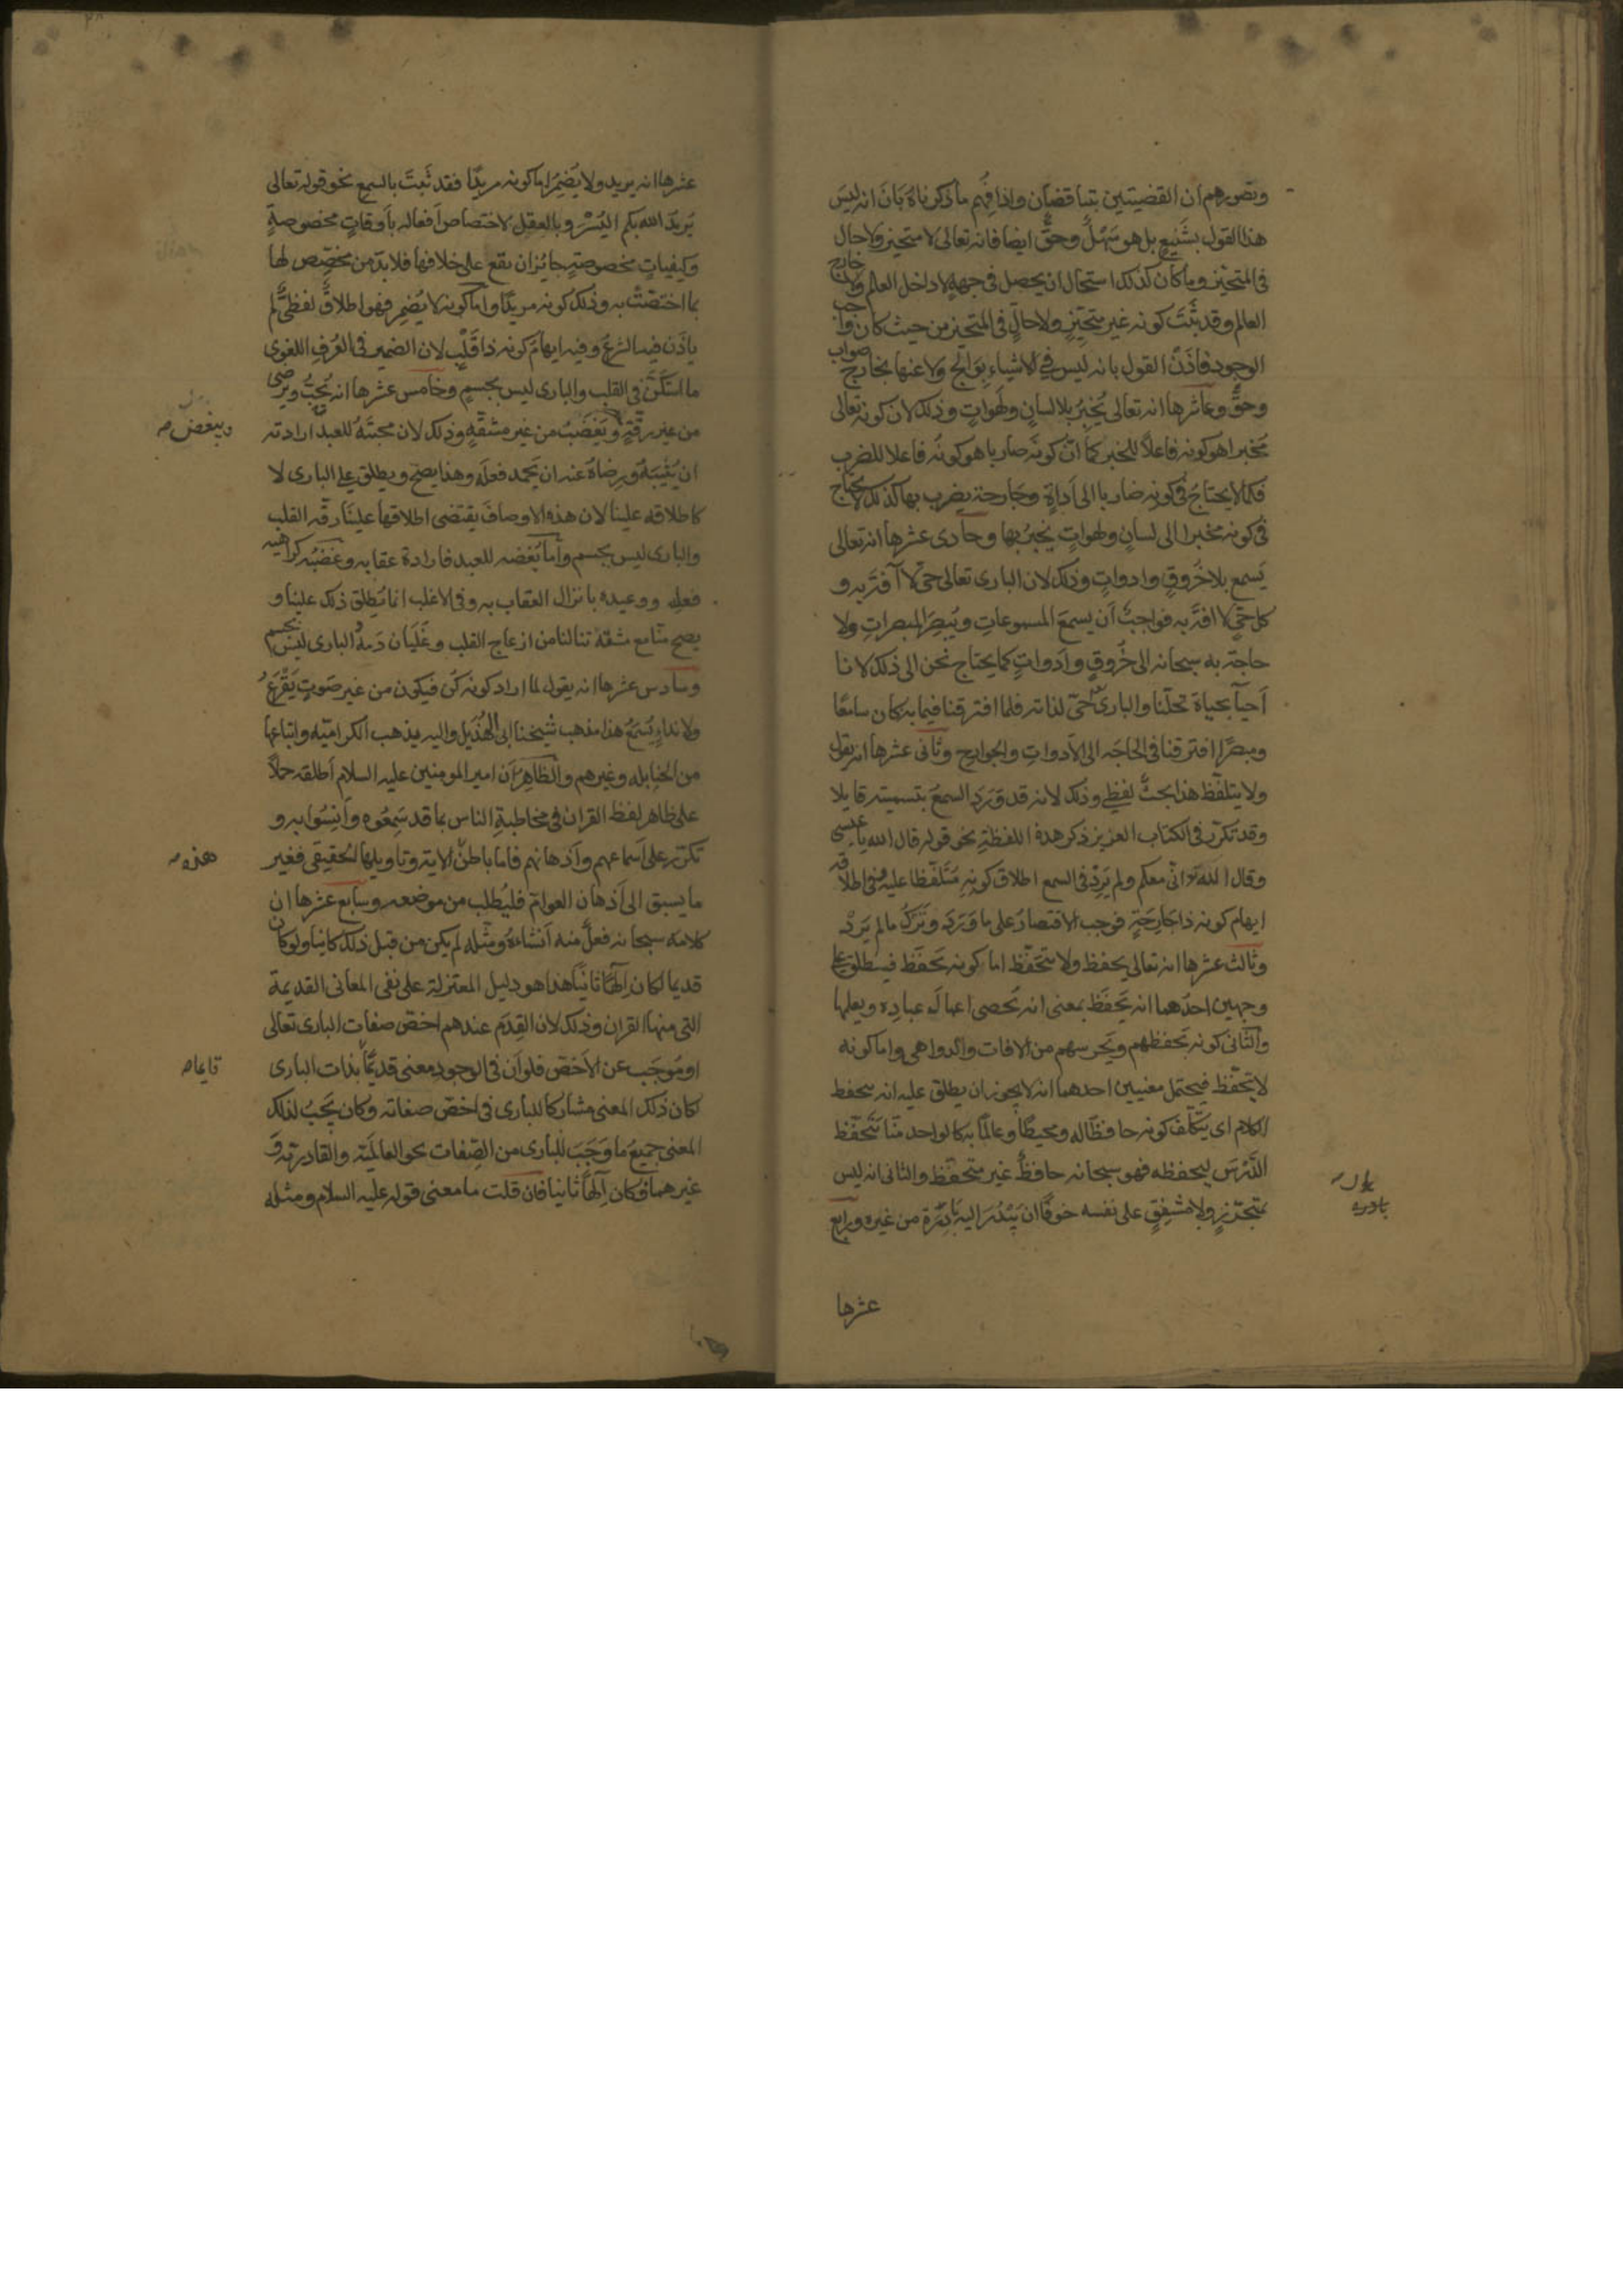 وتصورهم ان القضيتين يتناقضان واذا فُهم ما ذكرناهُ بَانَ انه ليسَ
هذا القول بشَنِيعٍ بل هو سَهْلٌ وحقٌّ ايضا فانه تعالى لا متحيز ولا حال
فى المتحيّز وما كان كذلك استحال ان يحصل فى جهةٍ لا داخل العالم ولا خارج
العالم وقد ثبتَ كونه غير متحيّزٍ ولا حالٍّ فى المتحيز من حيث كان واجب
الوجود فاذن القول بانه ليس فى الاشياء بوَالجٍ ولا عنها بخارجٍ صواب
وحقٌّ وعاشرها انه تعالى يُخْبِرُ بلا لسانٍ ولَهَواتٍ وذلك لان كونه تعالى
مخبرا هو كونه فاعلاً للخبر كما انّ كونَه ضاربا هو كونُه فاعلا للضرب
فكما لا يحتاجُ فى كونه ضاربا الى اَداةٍ وجَارحةٍ يضرب بها كذلك لا يحتاج
فى كونه مخبرا الى لسانٍ ولهواتٍ يُخبِرُ بها وحادى عشرها انه تعالى
يَسمع بلا خُروقٍ وادواتٍ وذلك لان البارى تعالى حىّ لا آفةَ به و
كل حىٍّ لا افةَ به فواجبٌ اَن يسمعَ المسموعاتِ ويُبصِرَ المبصراتِ ولا
حاجةَ به سبحانه الى خُروقٍ واَدواتٍ كما يحتاج نحن الى ذلك لانا
اَحياءٌ بحياة تحلّنا والبارىُ حىّ لذاته فلما افترقنا فيما به كان سامعًا
ومبصرًا افترقنا فى الحاجَه الى الاَدواتِ والجوارح وثانى عشرها انه يقول
ولا يتلفّظ هذا بحثٌ لفظى وذلك لانه قد وَرَدَ السمعُ بتسميته قايلا
وقد تكرّر فى الكتاب العزيز ذكر هذهِ اللفظةِ نحو قوله قال الله يا عيسى
وقال الله انّى معكم ولم يَرِدْ فى السمع اطلاق كونِه مُتَلَفّظا عليه وفى اطلاقه
ايهام كونه ذا جَارِحَةٍ فوجب الاقتصارُ على ما وَرَدَ وتَرْكُ ما لم يَرِدْ
وثالث عشرها انه تعالى يحفظ ولا يتحَفّظ اما كونه يَحفَظ فيطلق على
وجهين احدُهما انه يَحفَظ بمعنى انه يُحصى اعمالَ عباده ويعلمها
والثّانى كونه يَحفظهم ويَحرسهم من الافات والدواهى واما كونه
لا يتحَفّظ فيحتمل معنيين احدهما انه لا يجوز ان يطلق عليه انه يتحفظ
الكلام اى يتكلّف كونه حافظًا له ومحيطًا وعالمًا به كالواحد منّا يتحَفّظ
الدَّرْسَ ليحفظه فهو سبحانه حافظٌ غير متحفّظ والثانى انه ليس
بمتحرّزٍ ولا مشفقٍ على نفسه خوفًا ان يَبْدُرَ اليه بَادِرَة من غيره ورابع
بادره
عشرها
عشرها انه يريد ولا يُضمِرُ اما كونه مريدًا فقد ثَبتَ بالسمع نحو قوله تعالى
يُرِيدُ الله بكم اليُسْرَ وبالعقل لاختصاص اَفعاله بأَوقاتٍ مخصوصةٍ
وكيفياتٍ مخصوصةٍ جائزٍ ان يقع على خلافها فلا بدّ من مخصِّص لها
بما اختصّتْ به وذلك كونه مريدًا واما كونه لا يُضمِر فهو اطلاقٌ لفظىٌّ لم
ياذَن فيه الشرعُ وفيه ايهامُ كونه ذا قَلْبٍ لان الضمير فى العُرفِ اللغوى
ما استَكَنَّ فى القلب والبارى ليس بجسمٍ وخامس عشرها انه يُحِبُّ ويرضى
من غير رقّةٍ ويَغضَبُ من غير مشقّةٍ وذلك لان محبّتَهُ للعبد ارادته
ويبغض صح
ان يُثِيبَهُ ورِضاهُ عنه ان يَحمد فعلَه وهذا يصحّ ويطلق على البارى لا
كاطلاقه علينا لان هذه الاوصافَ يقتضى اطلاقها علينا رقّه القلب
والبارى ليس بجسم واما بُغضه للعبد فارادة عقابه وغَضَبُه كراهيه
فعله ووعيده بانزال العقاب به وفى الاغلب انما يُطلق ذلك علينا و
يصح منّا مع مشقة تنالنا من ازعاج القلب وغَلَيَان دَمه والبارى ليسَ بجسم
وسادس عشرها انه يقول لما اراد كونه كُن فيكون من غير صَوتٍ يَقْرَعُ
ولا نداءٍ يُسمَعُ هذا مذهب شيخنا ابى الهُذَيل واليه يذهب الكراميّه واتباعها
من الحنابله وغيرهم والظاهِرُ اَن امير المومنين عليه السلام اَطلقه حملاً
على ظاهر لفظ القران فى مخاطبةِ الناس بما قد سَمِعُوه واَنِسُوا به و
تكرّر على اَسماعهم واَذهانهم فاما باطنُ الاية وتاويلها الحقيقى فغير
هذه صح
ما يسبق الى اَذهان العوامّ فليُطلب من موضعه وسابع عشرها ان
كلامه سبحانه فعلٌ منه اَنشاهُ ومثّله لم يكن من قبل ذلك كائنًا ولو كان
قديما لكان اِلهًا ثانيًا هذا هو دليل المعتزلة على نفى المعانى القديمة
التى منها القران وذلك لان القِدَم عندهم اخصّ صفات البارى تعالى
او مُوجَب عن الاَخصّ فلو اَن فى الوجود معنى قديمًا بذات البارى
قايما صح
لكان ذلك المعنى مشاركا للبارى فى اخصّ صفاته وكان يَجبُ لذلك
المعنى جميعَ ما وَجَبَ للبارى من الصّفات نحو العالميّة والقادريّة و
غيرهما فكان اِلهًا ثانيا فان قلت ما معنى قوله عليه السلام ومثله